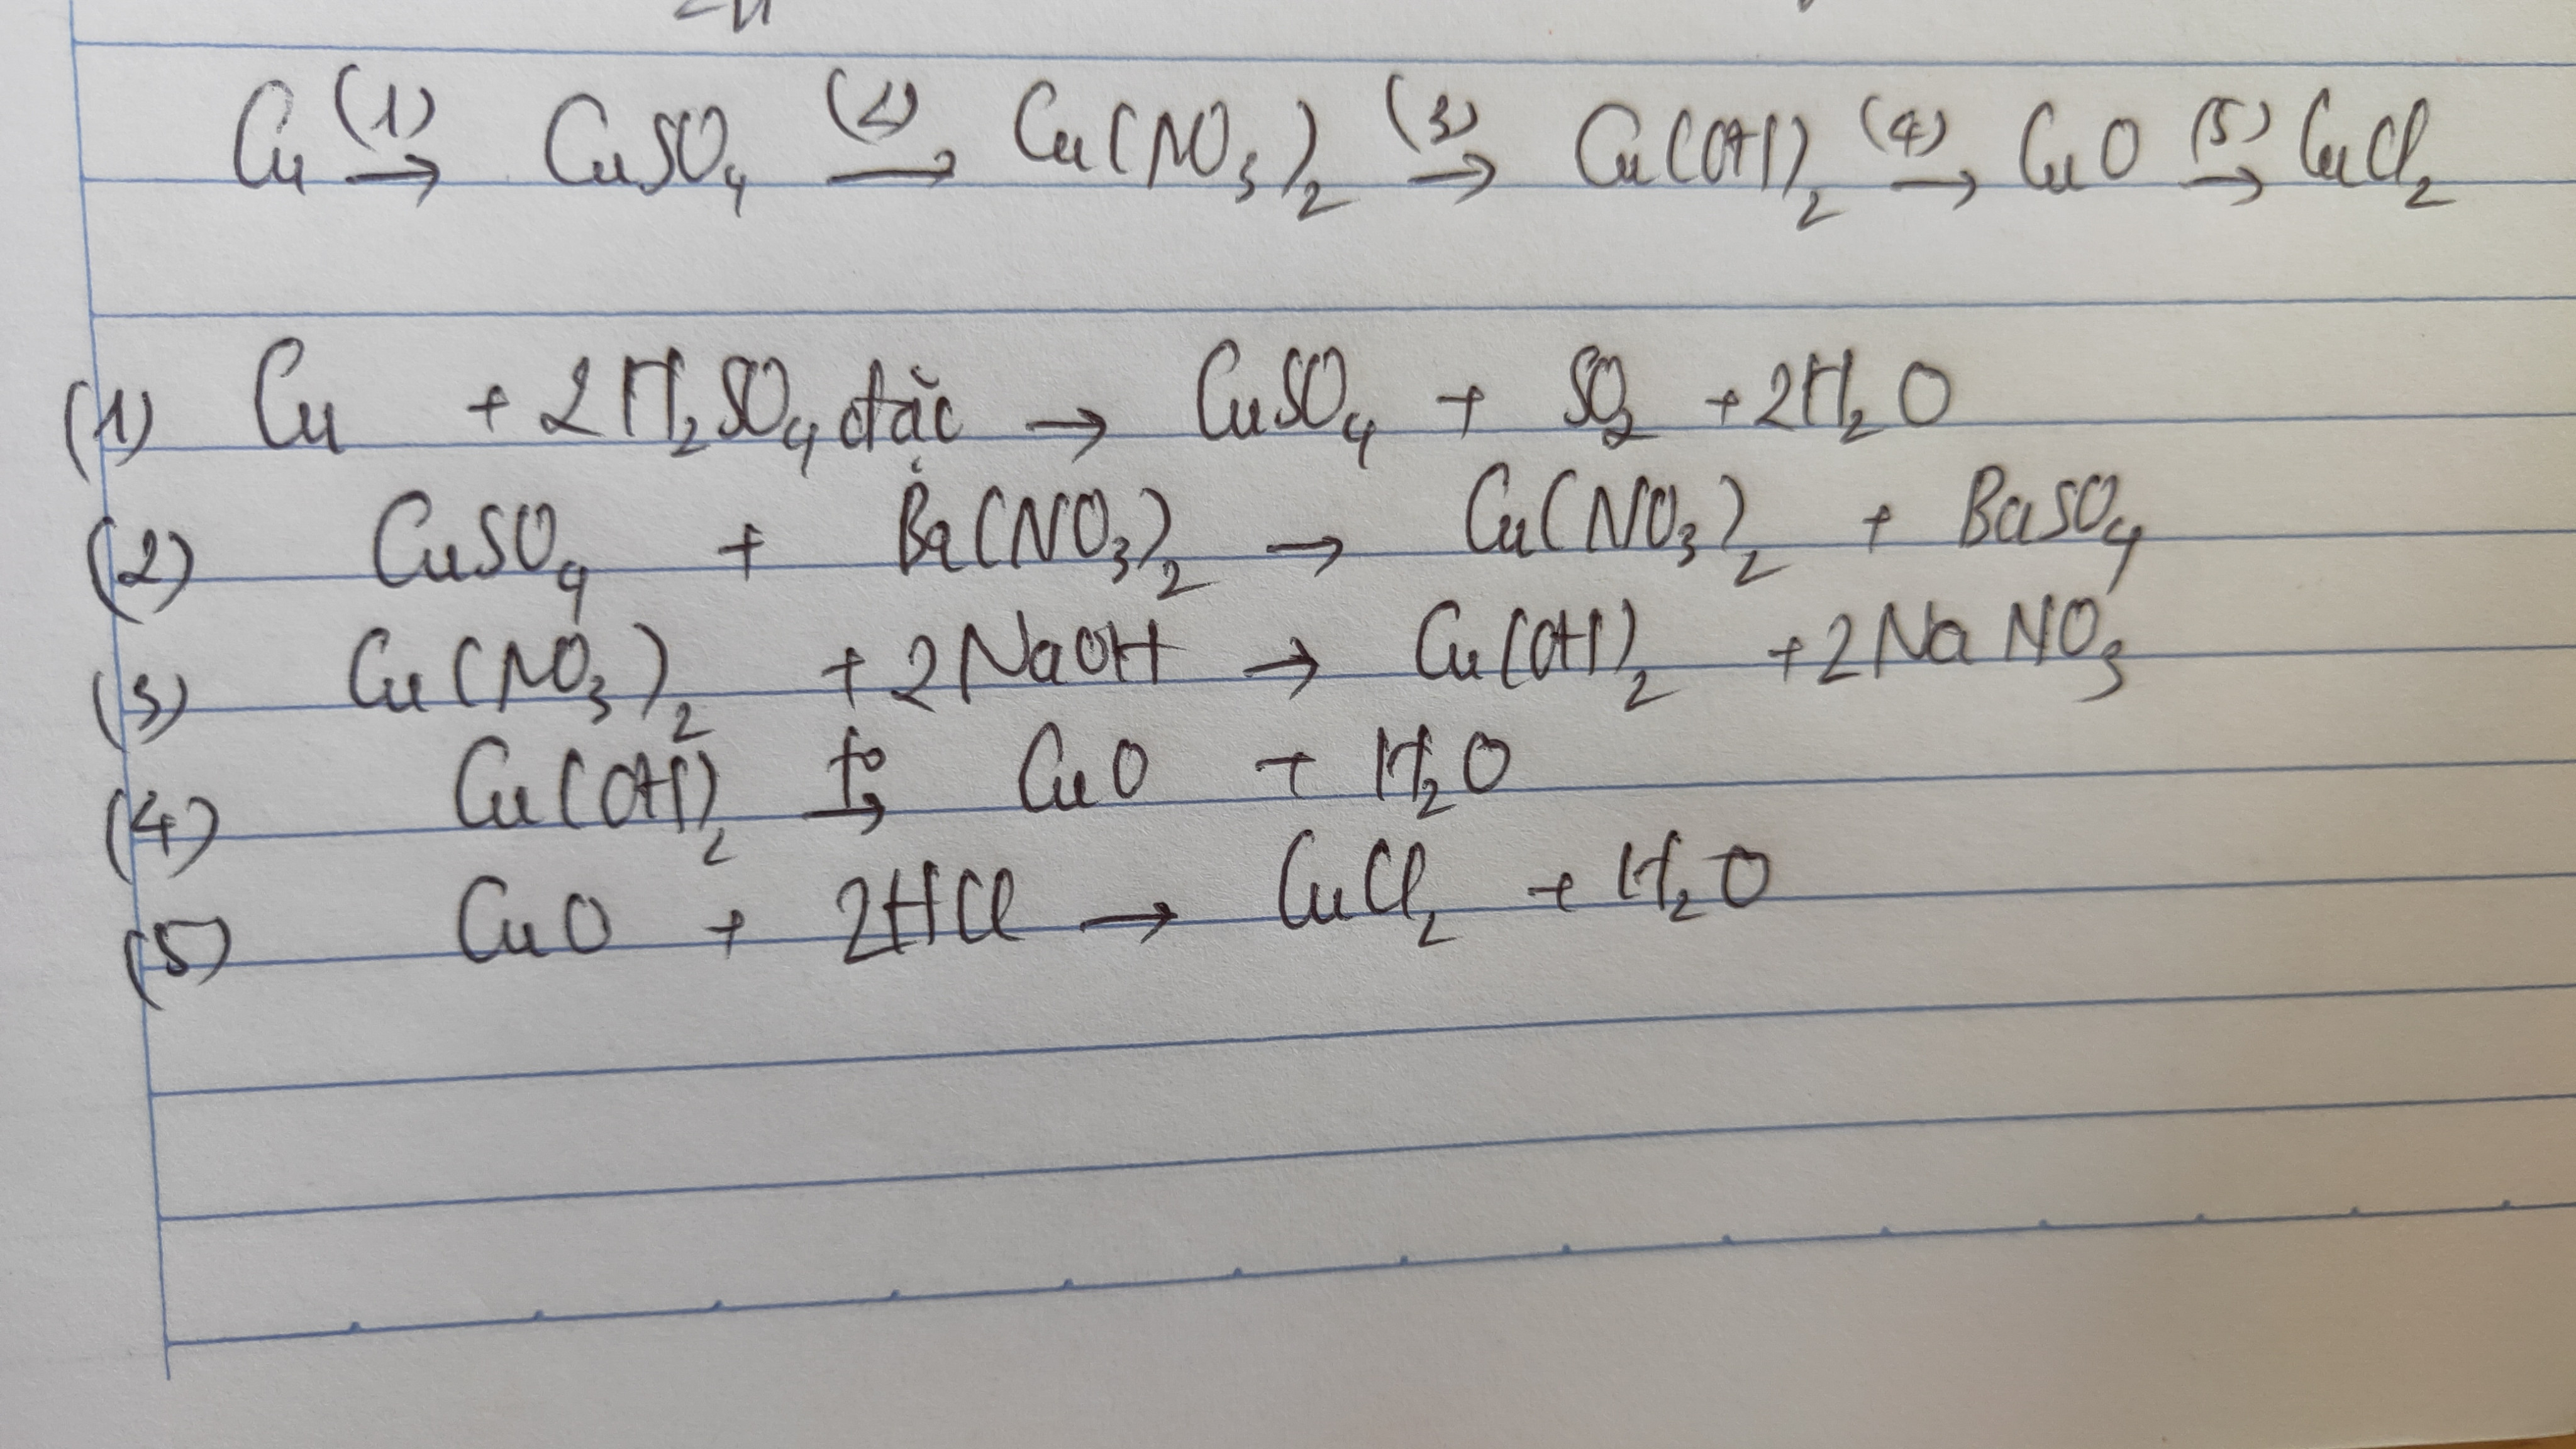 Cu (1)→ CuSO₄ (2)→ Cu(NO₃)₂ (3)→ Cu(OH)₂ (4)→ CuO (5)→ CuCl₂
(1) Cu + 2H₂SO₄ đặc → CuSO₄ + SO₂ + 2H₂O
(2) CuSO₄ + Ba(NO₃)₂ → Cu(NO₃)₂ + BaSO₄
(3) Cu(NO₃)₂ + 2NaOH → Cu(OH)₂ + 2NaNO₃
(4) Cu(OH)₂ t°→ CuO + H₂O
(5) CuO + 2HCl → CuCl₂ + H₂O